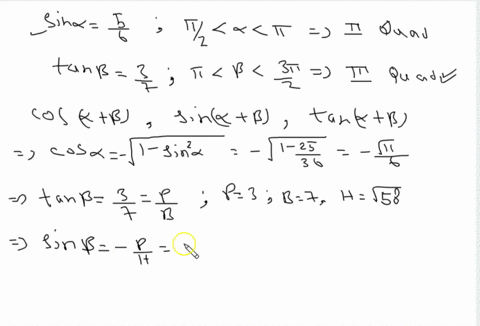 sinα = 5/6 ; π/2 < α < π => II Quad
tanβ = 3/7 ; π < β < 3π/2 => III Quad ✓
cos(α+β), sin(α+β), tan(α+β)
=> cosα = -√(1-sin²α) = -√(1-25/36) = -√11/6
=> tanβ = 3/7 = P/B ; P=3 ; B=7, H=√58
=> sinβ = -P/H =